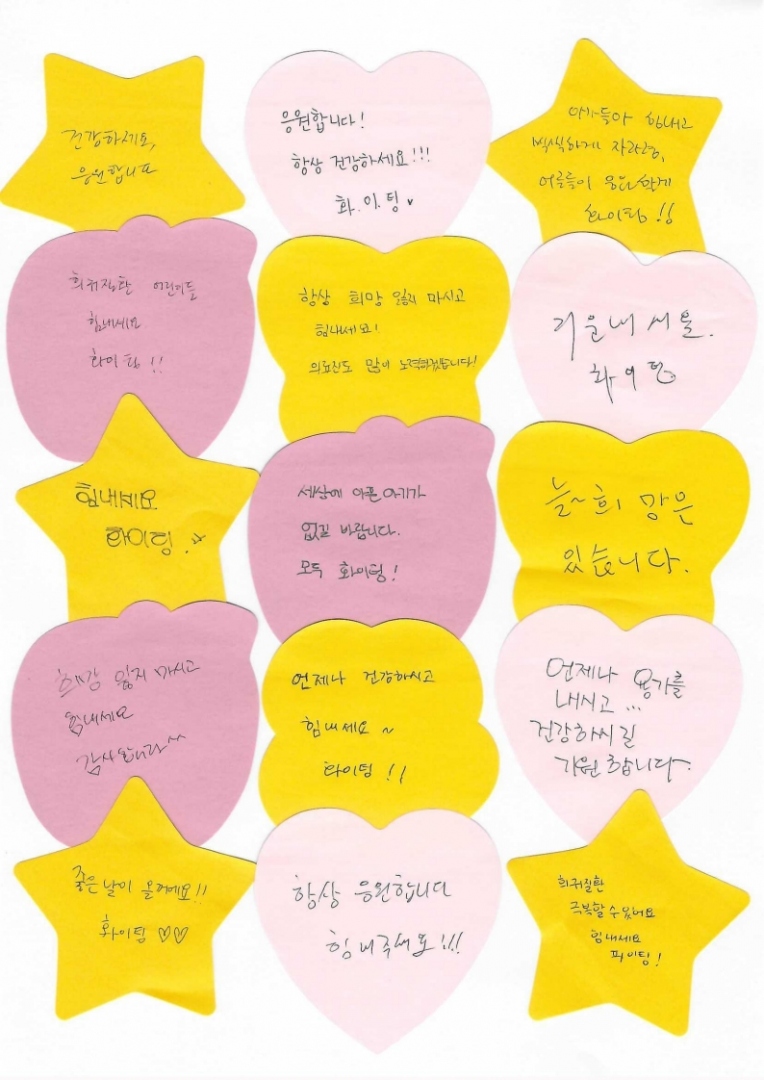 건강하세요,
응원합니다
응원합니다!
항상 건강하세요!!!
화.이.팅♥
아가들아 힘내고
씩씩하게 자라렴,
어른들이 응원할게
화이팅!!
희귀질환 어린이들
힘내세요
화이팅!!
항상 희망 잃지 마시고
힘내세요!
의료진도 많이 노력하겠습니다!
기운내세요.
화이팅
힘내세요
화이팅!
세상에 아픈 아기가
없길 바랍니다.
모두 화이팅!
늘~희망은
있습니다.
희망 잃지 마시고
힘내세요
감사합니다^^
언제나 건강하시고
힘내세요~
화이팅!!
언제나 용기를
내시고...
건강하시길
기원합니다.
좋은날이 올거에요!!
화이팅♡♡
항상 응원합니다
힘내주세요!!!
희귀질환
극복할 수 있어요
힘내세요
파이팅!